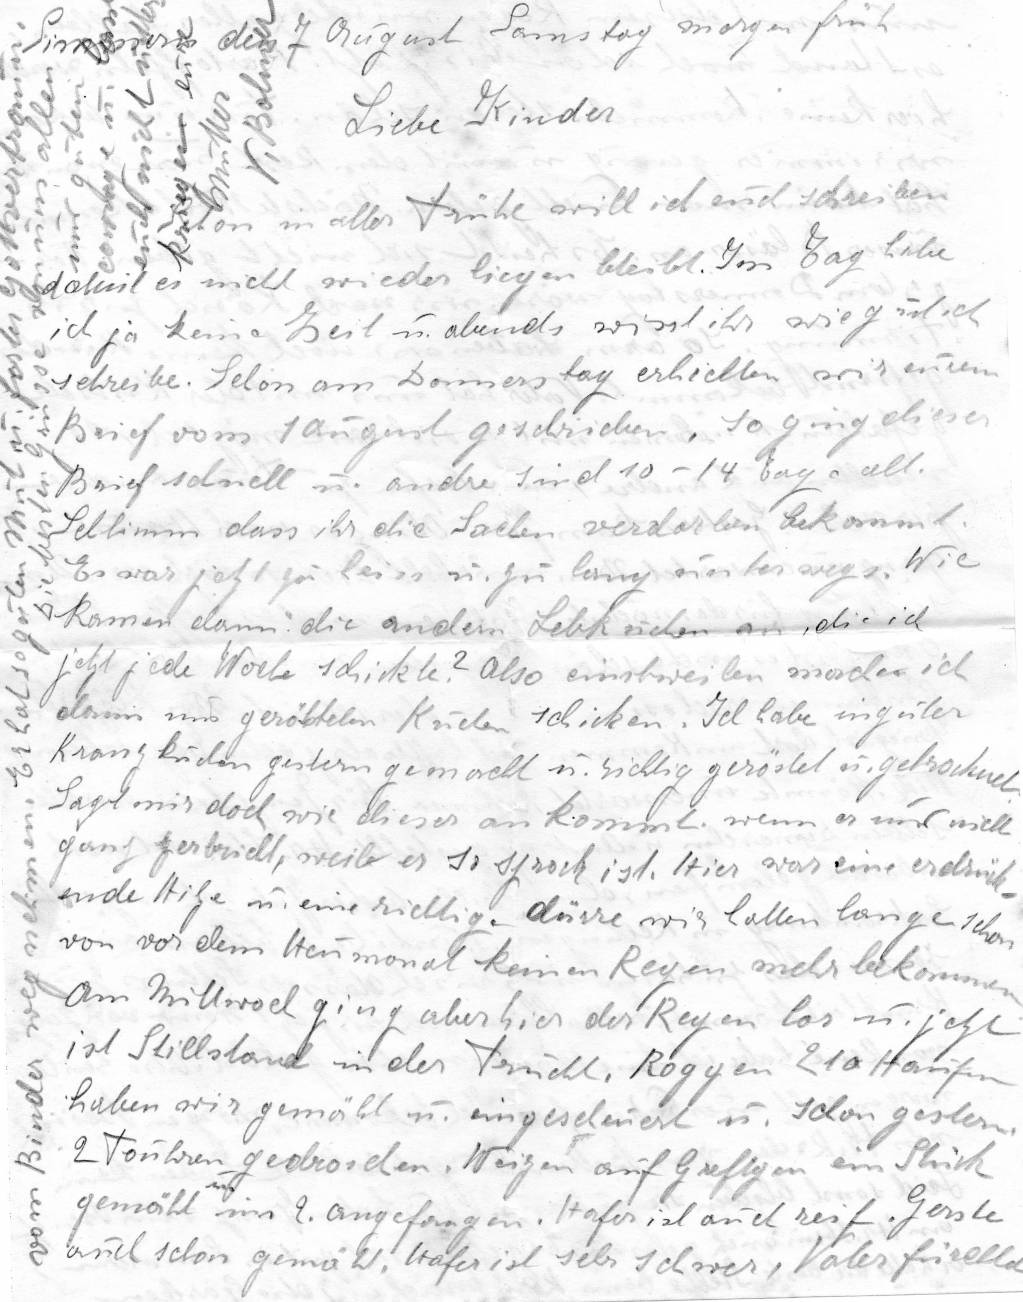 Simmern den 7 August Samstag morgen früh
Liebe Kinder
Schon in aller Frühe will ich euch schreiben
damit es nicht wieder liegen bleibt. Im Tag habe
ich ja keine Zeit u. abends wisst ihr wie gut ich
schreibe. Schon am Donnerstag erhielten wir euren
Brief vom 1 August geschrieben, so ging dieser
Brief schnell u. andre sind 10 - 14 Tage alt.
Schlimm dass ihr die Sachen verdorben bekommt.
Es war jetzt zu heiss u. zu lang unterwegs. Wie
kamen dann die andern Lebkuchen an, die ich
jetzt jede Woche schickte? Also einstweilen werde ich
dann nur gerösteten Kuchen schicken. Ich habe
Kranzkuchen gestern gemacht u. richtig geröstet u. getrocknet.
Sagt mir doch wie dieser ankommt. wenn er nur nicht
ganz zerbricht, weil er so sprock ist. Hier war eine erdrück-
ende Hitze u. eine richtige dürre wir hatten lange schon
von vor dem Heumonat keinen Regen mehr bekommen
Am Mittwoch ging aber hier der Regen los u. jetzt
ist Stillstand in der Frucht. Roggen 210 Haufen
haben wir gemäht u. eingescheuert u. schon gestern
2 Fuhren gedroschen. Weizen auf ein Stück
gemäht im 2. angefangen. Hafer ist auch reif. Gerste
auch schon gemäht. Hafer ist sehr schwer, Vater
vom Binder weg nehmen. Er hat so guten Mut u. festes Gottvertrauen.
Sie herzlich grüsse darum allen
nur guten
euch nicht
kriegen eure
Mutter